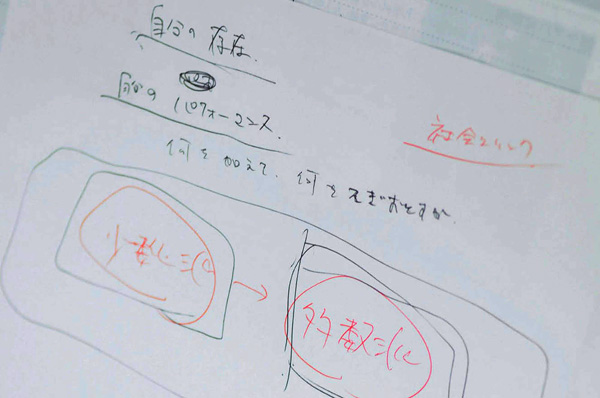 自分の存在.
自分の パフォーマンス.
社会とリンク
何を加えて、何をそぎおとすか
少数派 → 多数派